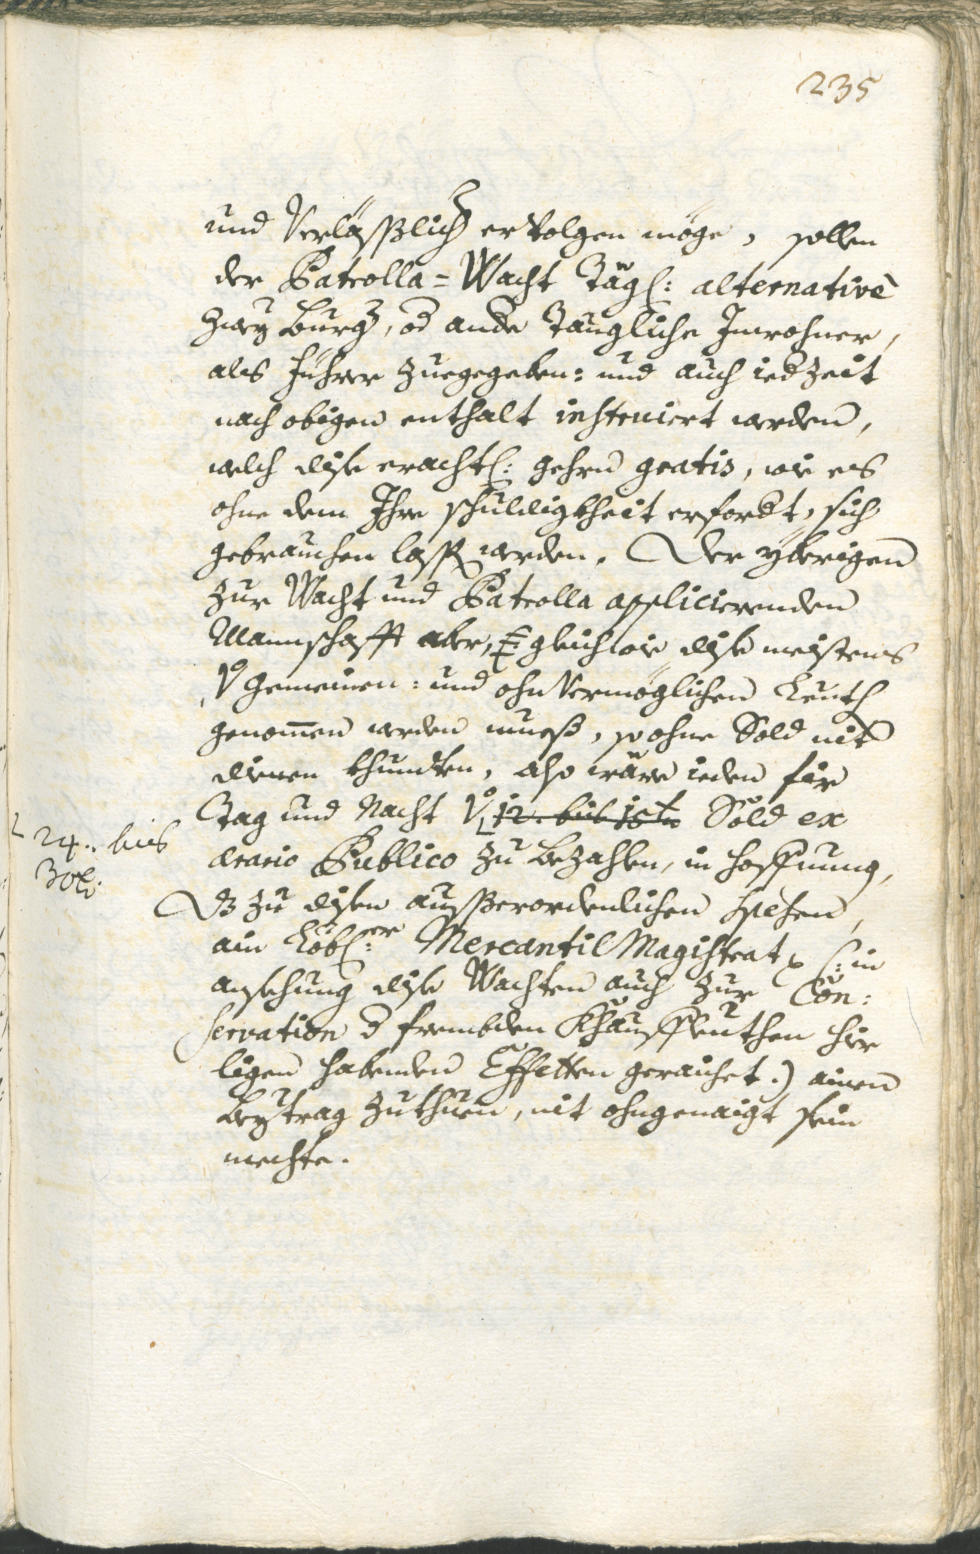 235
und Verläßlich ervolgen möge, sollen
der Patrolla-Wacht Tägl: alternativè
zwey Burg, od ande Taugliche Inwohner,
als Führer zuegegeben: und auch iedzeit
nach obigen enthalt instruiert werden,
welch dise erachtl: gehrn gratis, wie es
ohne dem Ihre schuldigkheit erfordt, sich
gebrauchen lass werden. Der yberigen
zur Wacht und Patrolla applicierenden
Mannschafft aber, gleichwie dise meistens
V gemeinen: und ohnvermöglichen Leuth
genommen werden mueß, so ohne Sold nit
dienen khundten, also wäre ieden für
Tag und Nacht V 12. bis 15 x Sold ex
24.. bis
30 x:
Aerario Publico zu bezahlen, in hoffnung,
Dz zu disen ausserordenlichen spesen,
ain Löbl:er Mercantil Magistrat (: in
ansehung dise Wachten auch zur Con:
servation d frembden Khauffleuthen hier
ligen habenden Effetten geraichet.) ainen
Beytrag zuthuen, nit ohngenaigt sein
mechte.